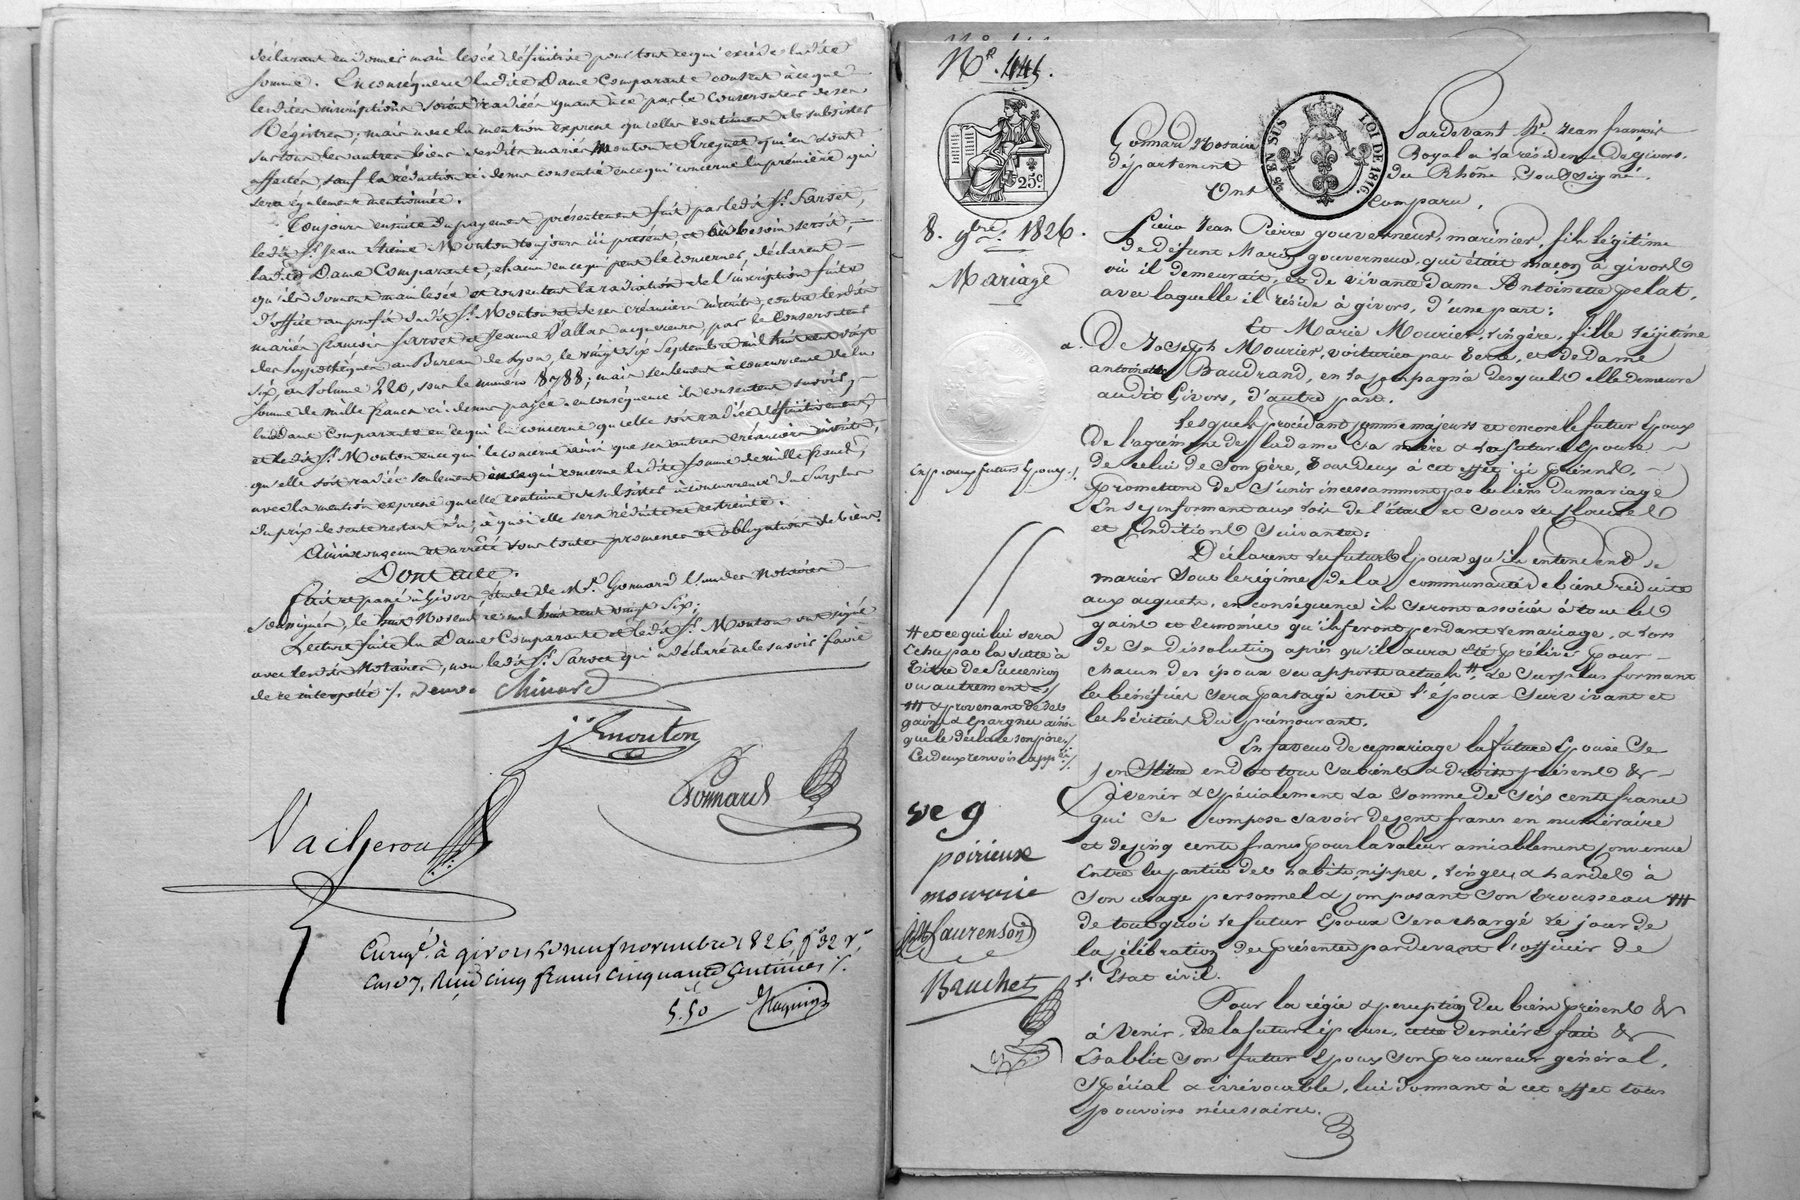 déclarant en donner main levée définitive pour tout ce qui excède ladite
somme. En conséquence ladite Dame Comparante consent à ce que
lesdites inscriptions soient radiées quant à ce par le Conservateur de ses
Régistres; mais avec la mention expresse qu'elles continuent de subsister
sur tous les autres biens desdits mariés Mouton et qui en sont
affectés, sauf la réduction ci-dessus consentie en ce qui concerne la première qui
sera également mentionnée.
Toujours ensuite du payement présentement fait par ledit Sr. Sarset,
ledit Sr. Jean Mouton toujours ici présent, et où besoin seroit,
ladite Dame Comparante, chacun en ce qui peut le concerner, déclarent
qu'ils donnent main levée et consentent la radiation de l'inscription faite
d'office au profit dudit Sr. Mouton et de ses créanciers inscrits, contre lesdits
mariés Sarset et Jeanne Vallas acquéreurs, par le Conservateur
des hypothèques au Bureau de Lyon, le vingt six Septembre mil huit cent vingt
six, au volume 220, sous le numéro 8788; mais seulement à concurrence de la
somme de mille francs ci-dessus payée. en conséquence ils consentent savoir,
ladite Dame Comparante en ce qui la concerne qu'elle soit radiée définitivement,
et ledit Sr. Mouton en ce qui le concerne ainsi que ses autres créanciers inscrits,
qu'elle soit radiée seulement en ce qui concerne ladite somme de mille francs,
avec la mention expresse qu'elle continue de subsister à concurrence du Surplus
du prix de vente restant dû, à quoi elle sera réduite et restreinte.
Ainsi convenu et arrêté sous toutes promesses et obligations de biens.
Dont acte.
Fait et passé à Givors, étude de Me. Gonnard l'un des Notaires
soussignés, le huit Novembre mil huit cent vingt six;
Lecture faite la Dame Comparante et ledit Sr. Mouton ont signé
avec lesdits Notaires, non ledit Sr. Sarset qui a déclaré ne le savoir faire
de ce interpellé ./. veuve Chinard
j. E mouton
Gonnard
Vacheron
Enregé. à givors le neuf novembre 1826, fo. 32 ro.
case 7. Reçu cinq francs cinquante centimes ./.
5.50
No. 441.
Pardevant Me. Jean françois
Gonnard Notaire Royal à la résidence de Givors,
département du Rhône, Soussigné.
Ont Comparu,
25 EN SUS
LOI DE 1816.
25c.
8. 9bre. 1826.
Mariage
Sieur Jean Pierre gouverneur, marinier, fils légitime
de défunt gouverneur, qui était maçon à givors
où il demeurait, et de vivante Dame Antoinette pelat,
avec laquelle il réside à givors, d'une part;
Et Marie Mourier, lingère, fille légitime
De Joseph Mourier, voiturier par terre, et de Dame
antoinette Baudrand, en la compagnie desquels elle demeure
audit Givors, d'autre part.
Lesquels procédant comme majeurs et encore le futur époux
De l'agrément de ladame sa mère & la future Epouse
de celui de Son père, tous deux à cet effet ici présents,
promettent de s'unir incessamment par les liens du mariage
En se conformant aux lois de l'état et sous les clauses
et Conditions Suivantes:
Déclarent les futurs Epoux qu'ils entendent se
marier sous le régime de la communauté de biens réduite
aux acquêts, en conséquence ils seront associés à tous les
gains et économies qu'ils feront pendant le mariage, & lors
de Sa dissolution après qu'il aura été prélevé pour
chacun des époux ses apports actuels #, Le Surplus formant
les bénéfices sera partagé entre l'époux Survivant et
les héritiers du prémourant.
# et ce qui lui sera
Echu par la suite à
titre de Succession
ou autrement
# & provenant de ses
gains & épargnes ainsi
que le déclare son père
Ces deux renvois app.
En faveur de ce mariage la future Epouse Se
constitue en dot tous ses biens & droits présents &
à venir & spécialement La Somme de Six cents francs
qui Se compose savoir de cent francs en numéraire
et de cinq cents francs pour la valeur amiablement convenue
Entre les parties des habits, nippes, linges, & hardes à
Son usage personnel & composant Son trousseau #
de tout quoi le futur Epoux sera chargé Le jour de
la célébration des présentes pardevant l'officier de
L'Etat civil.
Pour la régie & perception des biens présents &
à venir de la future épouse, cette dernière fait &
Etablit Son futur Epoux Son procureur général,
Spécial & irrévocable, lui donnant à cet effet tous
pouvoirs nécessaires.
ve g
poirieux
mourrie
Laurenson
Brachet